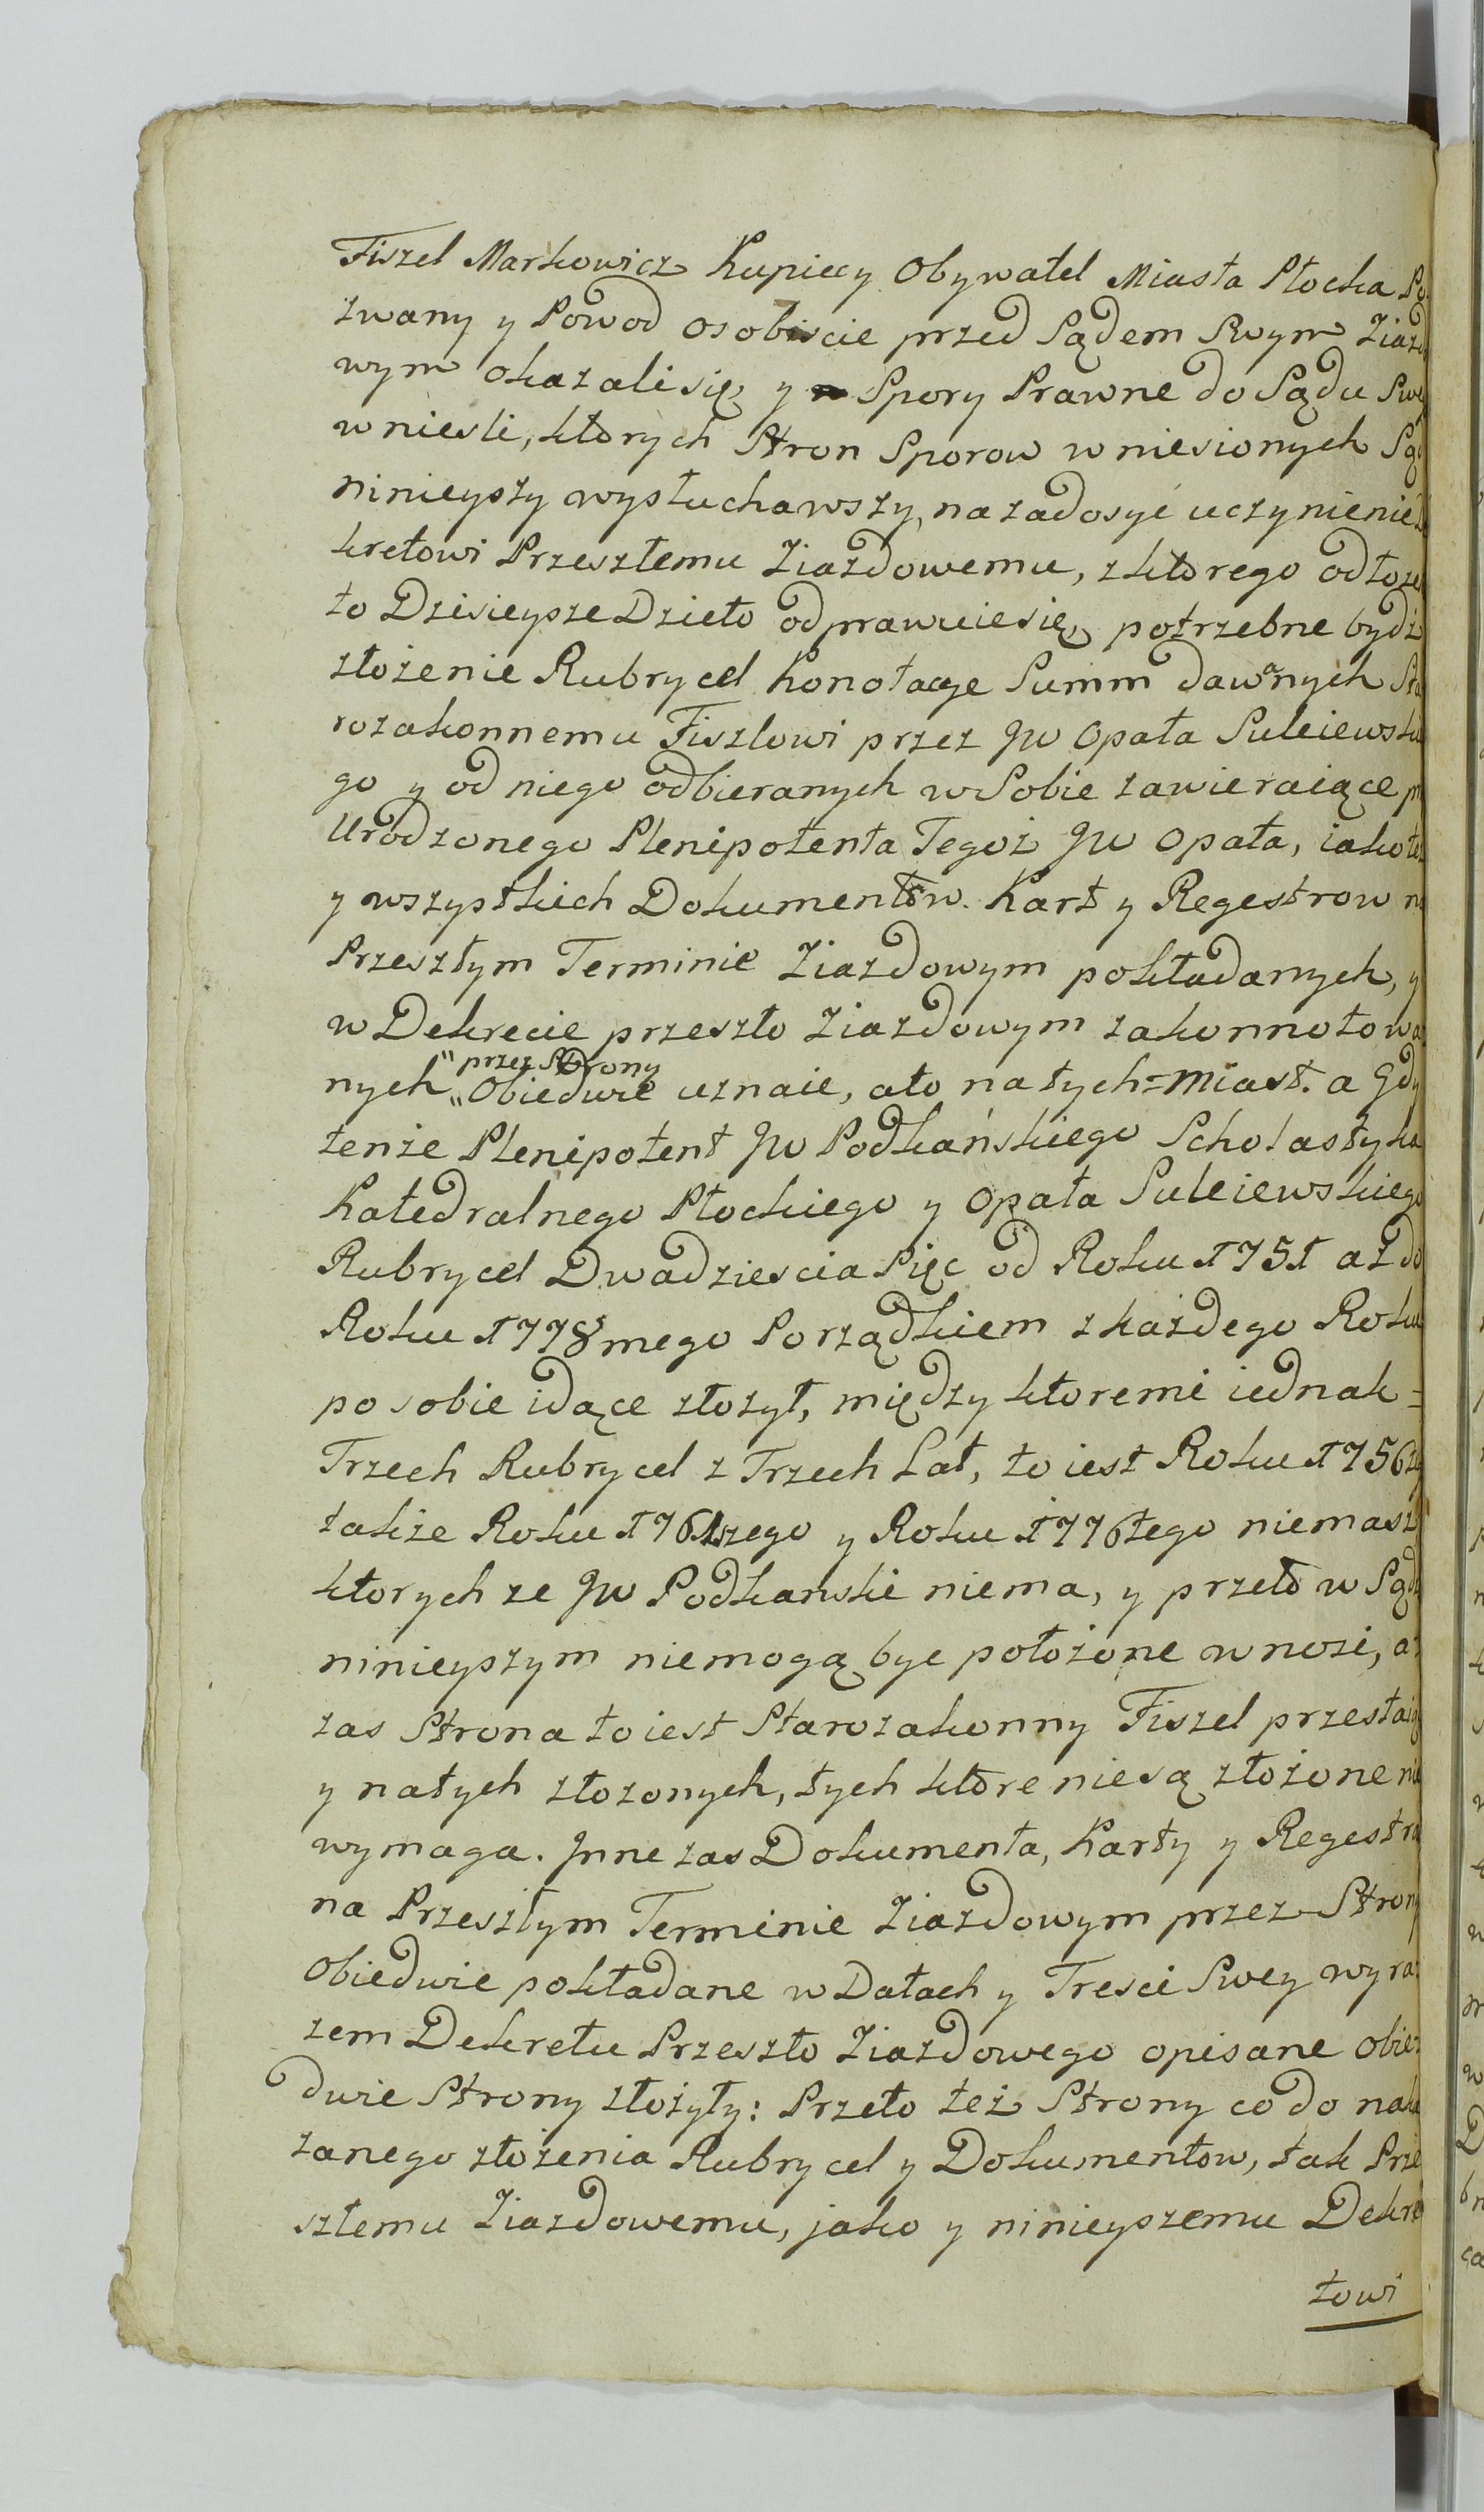 Fiszel Markowicz Kupiec y Obywatel Miasta Płocka Po
zwany y Powod osobiscie przed Sądem Swym Ziazdo
wym okazali się y Spory Prawne do Sądu Swe
wniesli, ktorych Stron Sporow wniesionych Sąd
ninieyszy wysłuchawszy, na zadosyć uczynienie De
kretowi Przeszłemu Ziazdowemu, z ktorego odłoże
to Dzisieysze Dzieło odprawuie się, potrzebne bydź
złożenie Rubrycel konotacye Summ dawanych Sta
rozakonnemu Fiszlowi przez JW Opata Suleiewskie
go y od niego odbieranych w Sobie zawieraiące p
Urodzonego Plenipotenta Tegoż JW Opata, iako też
y wszystkich Dokumentow. Kart y Regestrow na
Przeszłym Terminie Ziazdowym pokładanych, y
w Dekrecie przeszło Ziazdowym zakonnotowa
nych " przez Strony " Obiedwie uznaie, a to natych=miast. a Gdy
tenże Plenipotent JW Podkańskiego Scholastyka
Katedralnego Płockiego y Opata Suleiewskiego
Rubrycel Dwadziescia Pięc od Roku 1751 aż do
Roku 1778mego Porządkiem z każdego Roku
po sobie idące złożył, między ktoremi iednak=
Trzech Rubrycel z Trzech Lat, to iest Roku 1756
także Roku 1761szego y Roku 1776tego niemasz
ktorych ze JW Podkanski niema, y przeto w Sądz
ninieyszym niemogą byc położone wnosi, a
zas Strona to iest Starozakonny Fiszel przestaią
y na tych złożonych, tych ktore nie są złożone nie
wymaga. Jnne zas Dokumenta, Karty y Regestra
na Przeszłym Terminie Ziazdowym przez Strony
Obiedwie pokładane w Datach y Tresci Swey wyra
zem Dekretu Przeszło Ziazdowego opisane Obie=
dwie Strony złożyły: Przeto też Strony co do naka
zanego złożenia Rubrycel y Dokumentow, tak Prze
szłemu Ziazdowemu, jako y ninieyszemu Dekre
towi